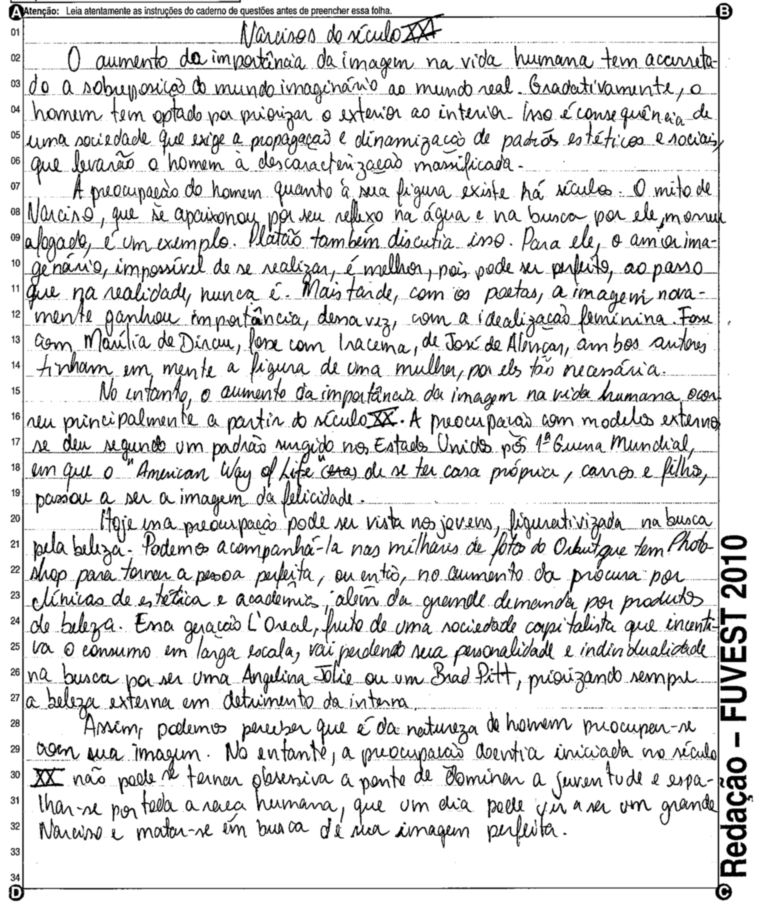 Atenção: Leia atentamente as instruções do caderno de questões antes de preencher essa folha.
A
B
01 Narcisos do século XXI
02 O aumento da importância da imagem na vida humana tem acarreta-
03 do a sobreposição do mundo imaginário ao mundo real. Gradativamente, o
04 homem tem optado por priorizar o exterior ao interior. Isso é consequência de
05 uma sociedade que exige a propagação e dinamização de padrões estéticos e sociais,
06 que levarão o homem à descaracterização massificada.
07 A preocupação do homem quanto à sua figura existe há séculos. O mito de
08 Narciso, que se apaixonou por seu reflexo na água e na busca por ele, morreu
09 afogado, é um exemplo. Platão também discutia isso. Para ele, o amor ima-
10 genário, impossível de se realizar, é melhor, pois pode ser perfeito, ao passo
11 que na realidade, nunca é. Mais tarde, com os poetas, a imagem nova-
12 mente ganhou importância, dessa vez, com a idealização feminina. Fosse
13 com Marília de Dirceu, fosse com Iracema, de José de Alencar, ambos autores
14 tinham em mente a figura de uma mulher, por eles tão necessária.
15 No entanto, o aumento da importância da imagem na vida humana ocor
16 reu principalmente a partir do século XX. A preocupação com modelos externos
17 se deu segundo um padrão surgido nos Estados Unidos pós 1ª Guerra Mundial,
18 em que o "American Way of Life" de se ter casa própria, carros e filhos,
19 passou a ser a imagem da felicidade.
20 Hoje essa preocupação pode ser vista nos jovens, figurativizada na busca
21 pela beleza. Podemos acompanhá-la nas milhares de fotos do Orkut que tem Photo-
22 shop para tornar a pessoa perfeita, ou então, no aumento da procura por
23 clínicas de estética e academias, além da grande demanda por produtos
24 de beleza. Essa geração L'Oreal, fruto de uma sociedade capitalista que incenti-
25 va o consumo em larga escala, vai perdendo sua personalidade e individualidade
26 na busca por ser uma Angelina Jolie ou um Brad Pitt, priorizando sempre
27 a beleza externa em detrimento da interna.
28 Assim, podemos perceber que é da natureza do homem preocupar-se
29 com sua imagem. No entanto, a preocupação doentia iniciada no século
30 XX não pode se tornar obsessiva a ponto de dominar a juventude e espa-
31 lhar-se por toda a raça humana, que um dia pode vir a ser um grande
32 Narciso e matar-se em busca de sua imagem perfeita.
33
34
D
C
Redação – FUVEST 2010